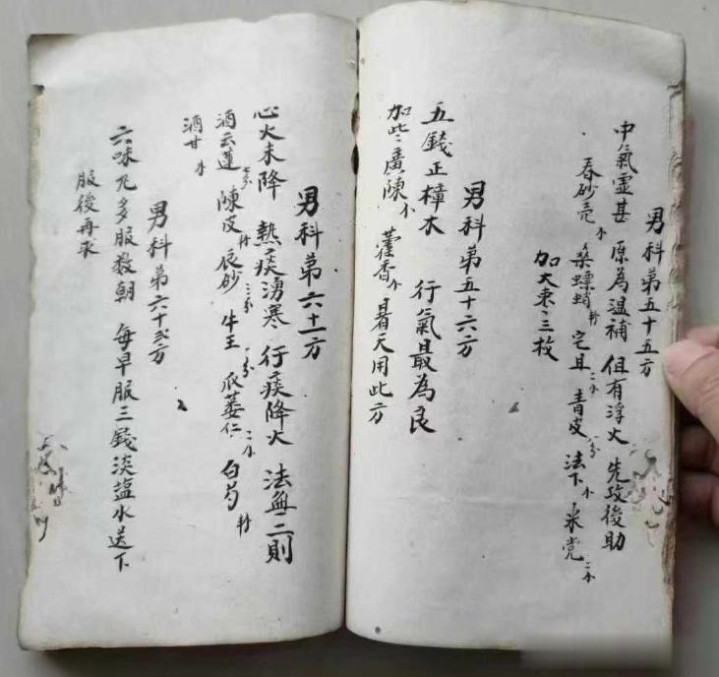 男科第五十五方
中氣虛甚 原為温補 但有浮火 先攻後助
春砂壳 桑螵蛸 宅且 青皮 法下 米党
加大枣三枚
男科第五十六方
五錢正樟木 行氣最為良
加些廣陳 藿香 暑天用此方
男科第六十一方
心火未降 熱痰湧寒 行痰降火 法無二則
酒云蓮 陳皮 辰砂 牛王 瓜蒌仁 白芍
酒甘
男科第六十弍方
六味凡多服数朝 每早服三錢淡盐水送下
服後再求